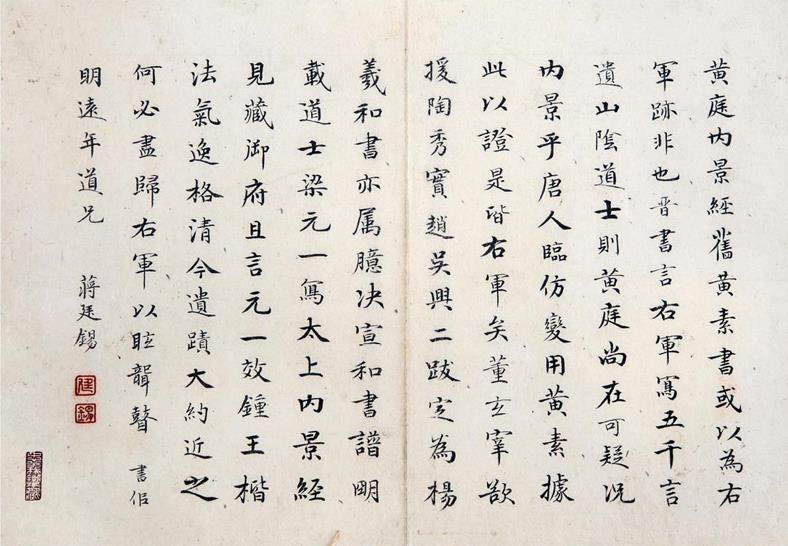 黃庭內景經舊黃素書或以為右
軍跡非也晉書言右軍寫五千言
遺山陰道士則黃庭尚在可疑况
內景乎唐人臨仿變用黃素據
此以證是皆右軍矣董玄宰欲
援陶秀實趙吳興二跋定為楊
羲和書亦属臆决宣和書譜明
載道士梁元一寫太上內景經
見藏御府且言元一效鍾王楷
法氣逸格清今遺蹟大約近之
何必盡歸右軍以眩聾瞽 書侣
明遠年道兄 蔣廷錫
廷
錫